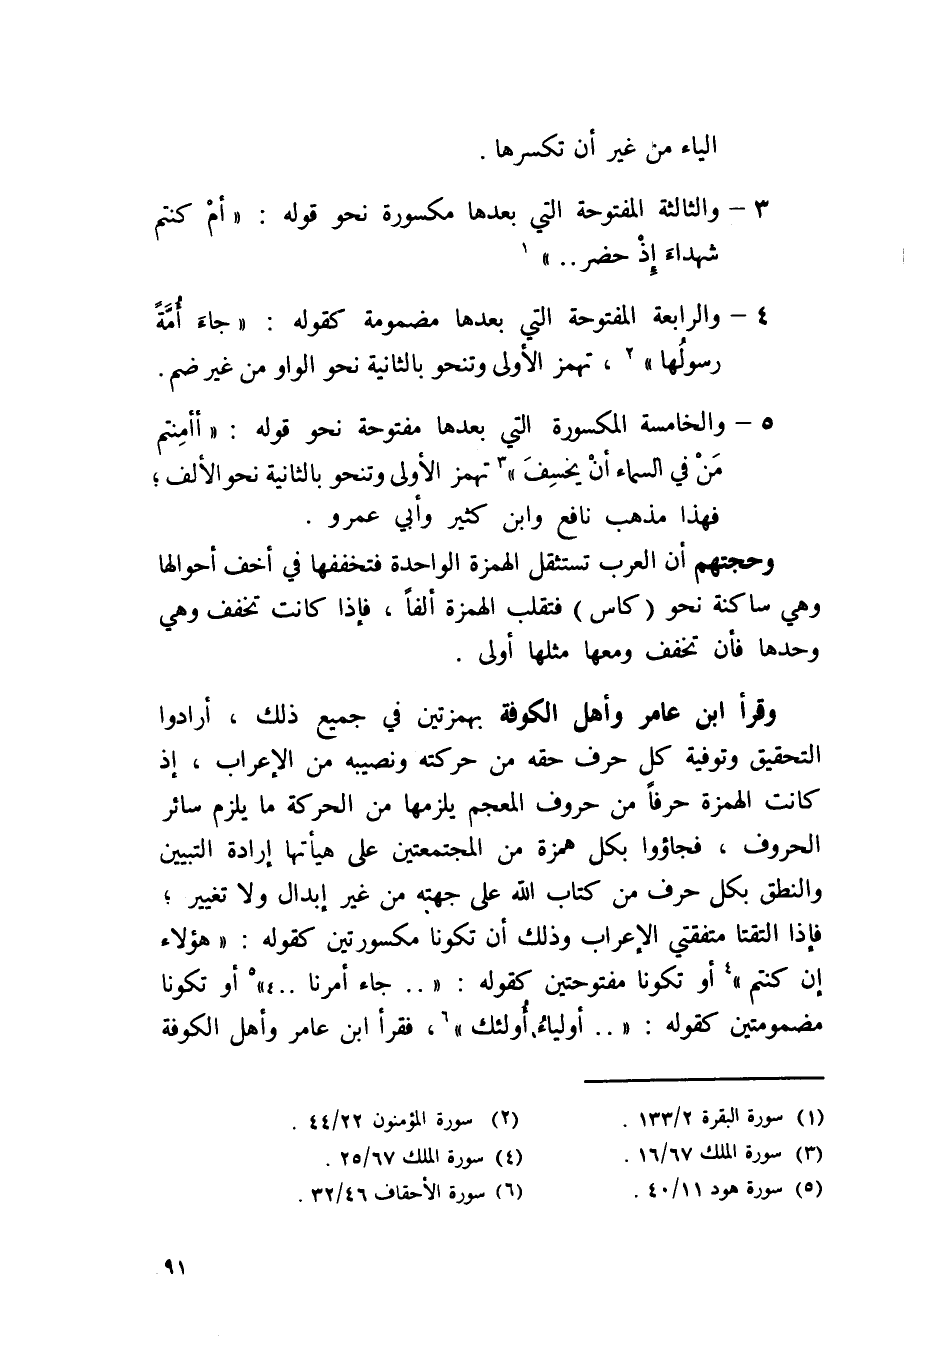 الياء من غير أن تكسرها .
٣ – والثالثة المفتوحة التي بعدها مكسورة نحو قوله : « أمْ كنتم
شهداءَ إِذْ حضر .. » ١
٤ – والرابعة المفتوحة التي بعدها مضمومة كقوله : « جاءَ أُمَّةً
رسولُها » ٢ ، تهمز الأولى وتنحو بالثانية نحو الواو من غير ضم .
٥ – والخامسة المكسورة التي بعدها مفتوحة نحو قوله : « أأمِنتم
مَنْ في السماء أنْ يخسِفَ »٣ تهمز الأولى وتنحو بالثانية نحو الألف ؛
فهذا مذهب نافع وابن كثير وأبي عمرو .
وحجتهم أن العرب تستثقل الهمزة الواحدة فتخففها في أخف أحوالها
وهي ساكنة نحو ( كاس ) فتقلب الهمزة ألفاً ، فإذا كانت تخفف وهي
وحدها فأن تخفف ومعها مثلها أولى .
وقرأ ابن عامر وأهل الكوفة بهمزتين في جميع ذلك ، أرادوا
التحقيق وتوفية كل حرف حقه من حركته ونصيبه من الإعراب ، إذ
كانت الهمزة حرفاً من حروف المعجم يلزمها من الحركة ما يلزم سائر
الحروف ، فجاؤوا بكل همزة من المجتمعتين على هيأتها إرادة التبيين
والنطق بكل حرف من كتاب الله على جهته من غير إبدال ولا تغيير ؛
فإذا التقتا متفقتي الإعراب وذلك أن تكونا مكسورتين كقوله : « هؤلاء
إن كنتم »٤ أو تكونا مفتوحتين كقوله : « .. جاء أمرنا ..»٥ أو تكونا
مضمومتين كقوله : « .. أولياءُ أُولئك »٦ ، فقرأ ابن عامر وأهل الكوفة
(١) سورة البقرة ١٣٣/٢ .
(٢) سورة المؤمنون ٤٤/٢٢ .
(٣) سورة الملك ١٦/٦٧ .
(٤) سورة الملك ٢٥/٦٧ .
(٥) سورة هود ٤٠/١١ .
(٦) سورة الأحقاف ٣٢/٤٦ .
٩١